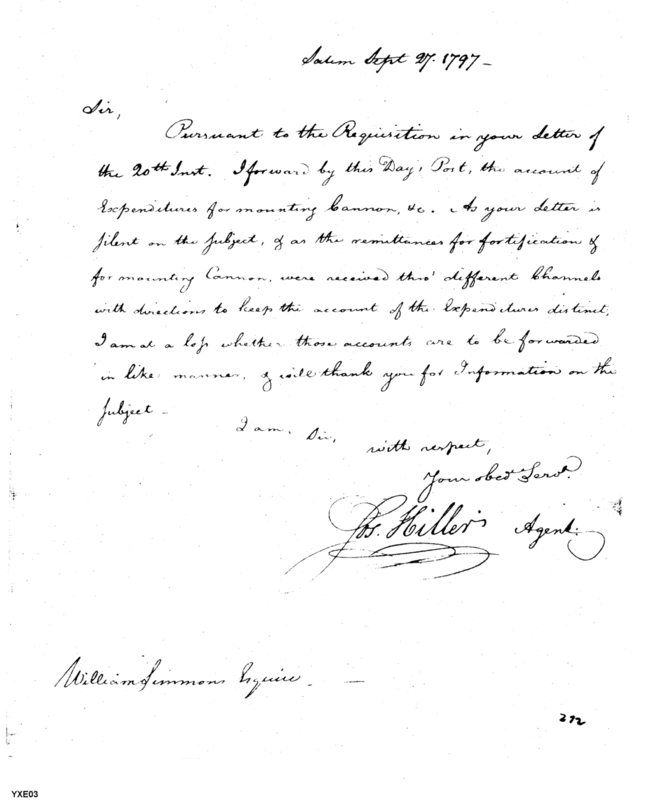 Salem Sept 27. 1797 -
Sir,
Pursuant to the Requisition in your Letter of
the 20th Inst. I forward by this Day's Post, the account of
Expenditures for mounting Cannon, &c. As your Letter is
silent on the subject, & as the remittances for fortification &
for mounting Cannon, were received thro' different Channels
with directions to keep the account of the Expenditures distinct,
I am at a loss whether those accounts are to be forwarded
in like manner, & will thank you for Information on the
subject -
I am, Sir, with respect,
Your obed't Serv't.
Jos. Hiller Agent.
William Simmons Esquire. -
272
YXE03